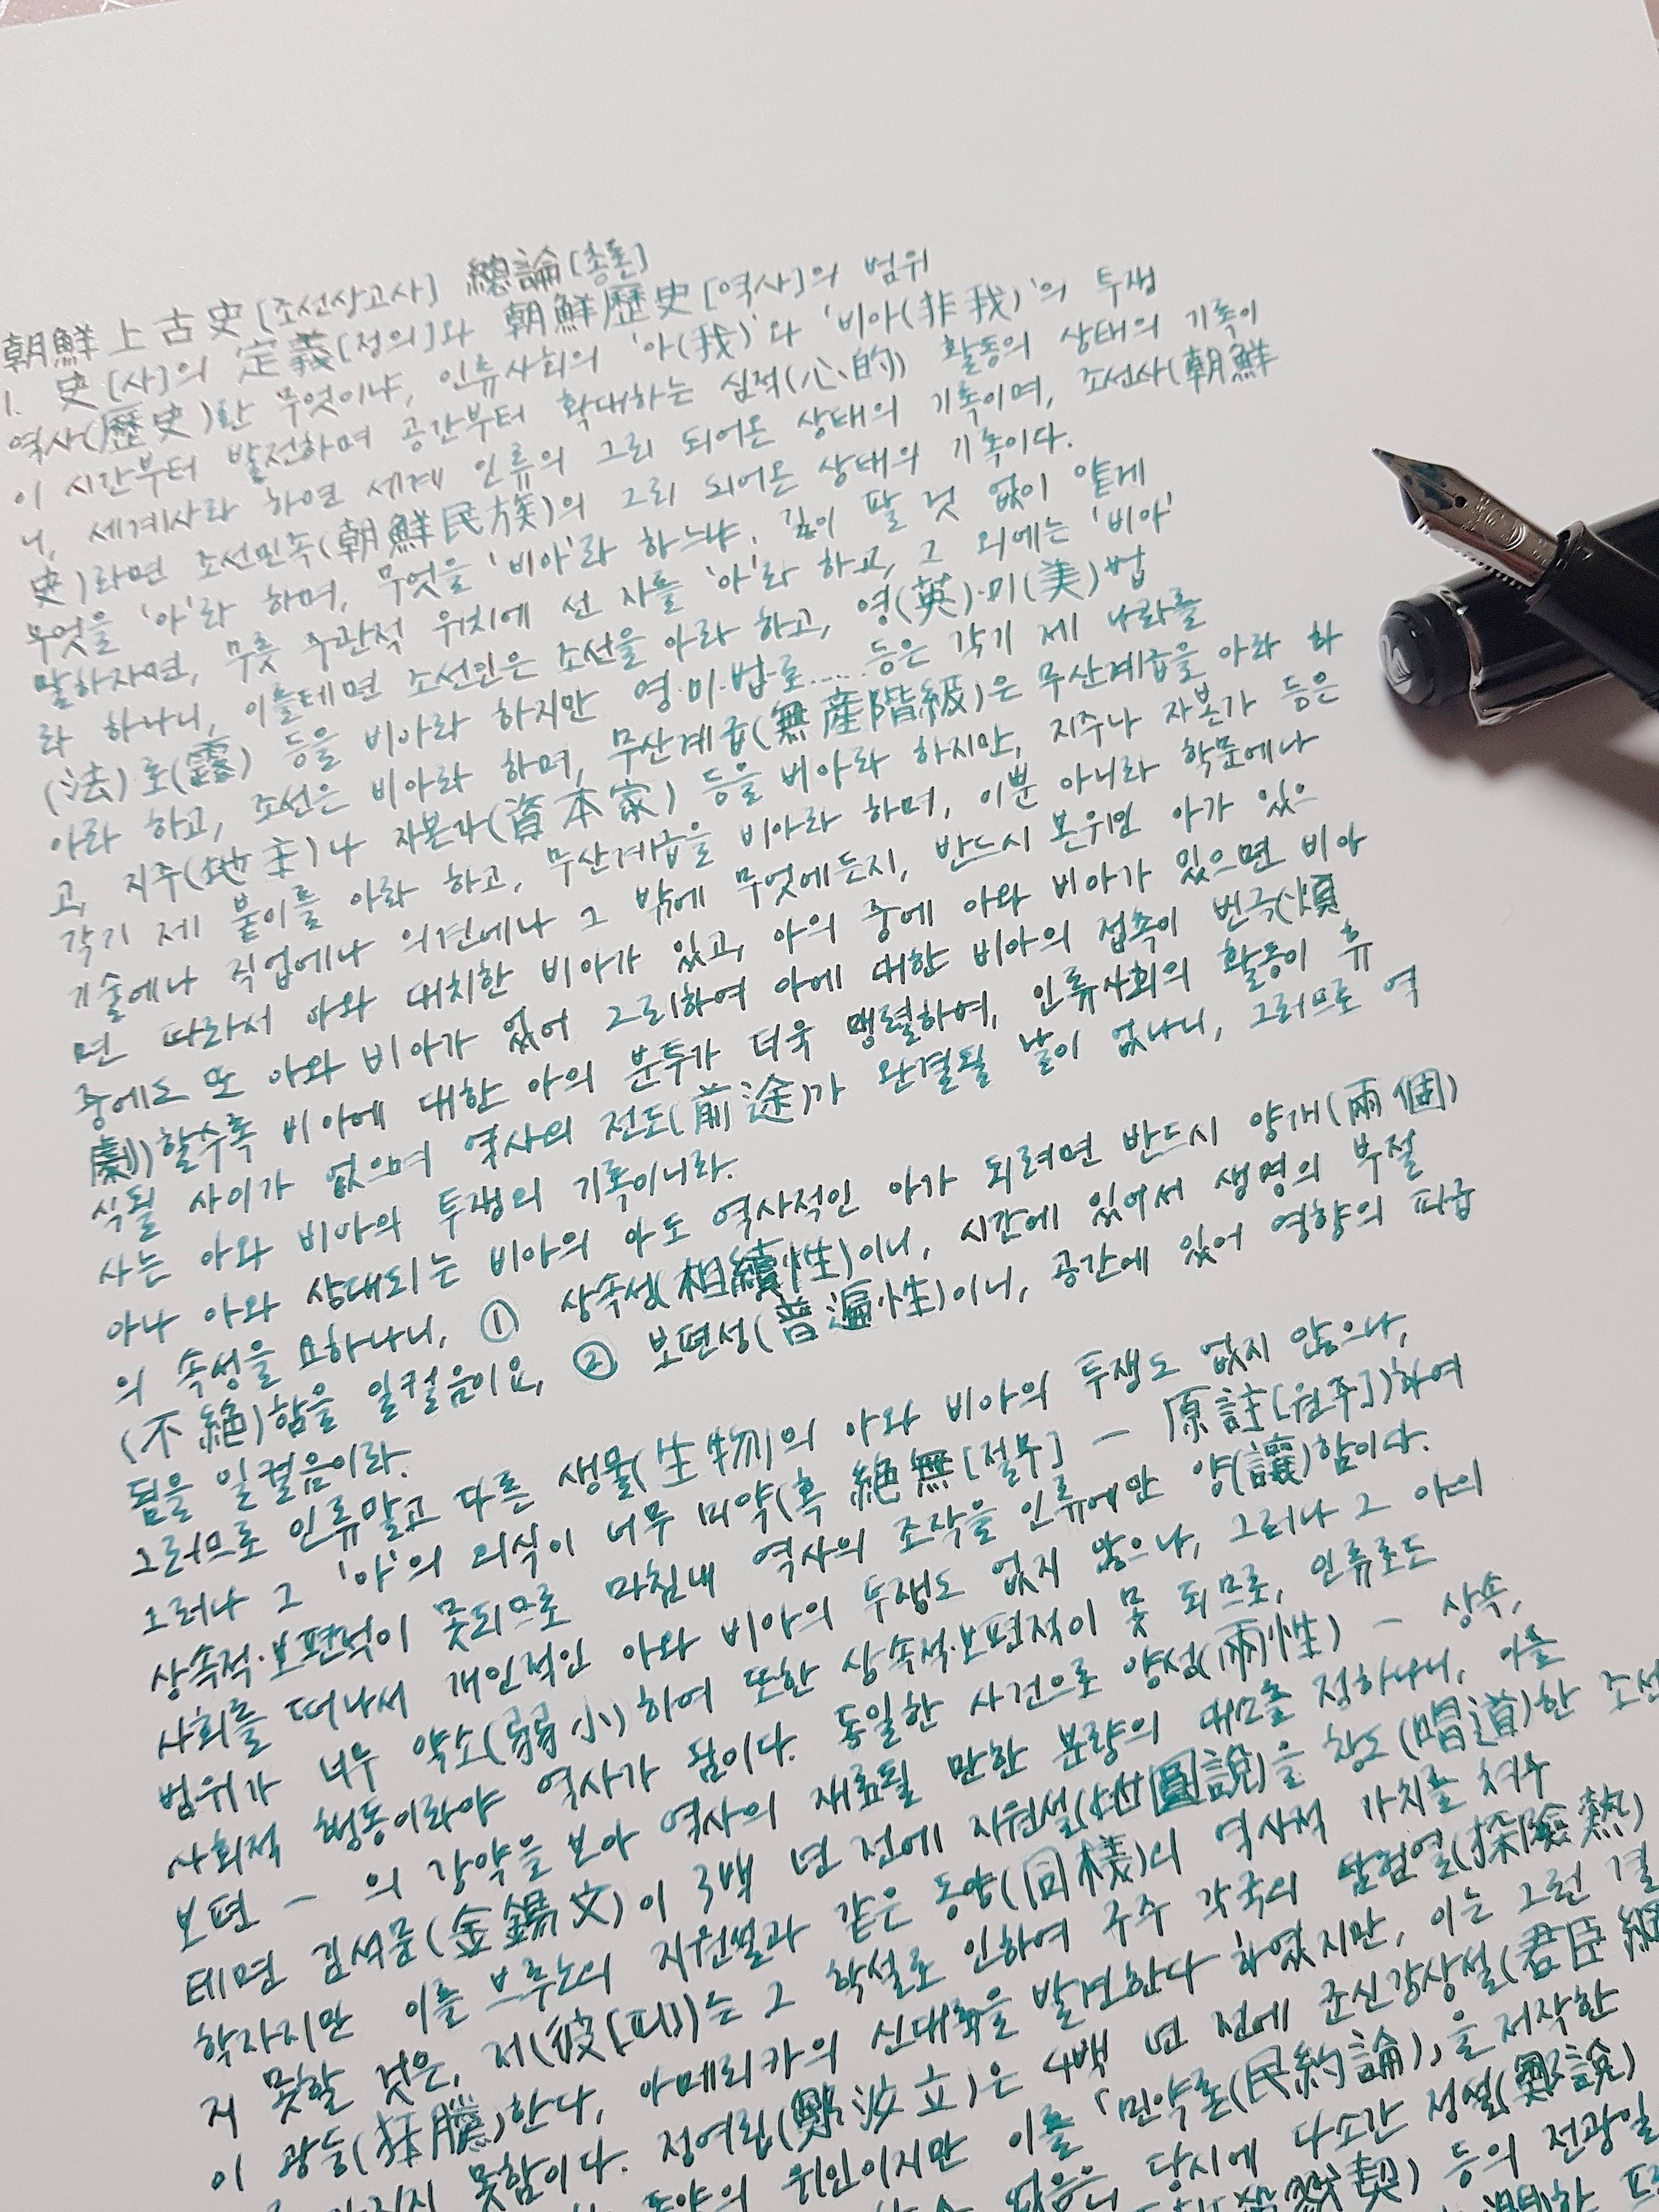 朝鮮上古史[조선상고사] 總論[총론]
1. 史[사]의 定義[정의]와 朝鮮歷史[역사]의 범위
역사(歷史)란 무엇이냐, 인류사회의 '아(我)'와 '비아(非我)'의 투쟁
이 시간부터 발전하며 공간부터 확대하는 심적(心的) 활동의 상태의 기록이
니, 세계사라 하면 세계 인류의 그리 되어온 상태의 기록이며, 조선사(朝鮮
史)라면 조선민족(朝鮮民族)의 그리 되어온 상태의 기록이다.
무엇을 '아'라 하며, 무엇을 '비아'라 하느냐. 깊이 팔 것 없이 얕게
말하자면, 무릇 주관적 위치에 선 자를 '아'라 하고, 그 외에는 '비아'
라 하나니, 이를테면 조선인은 조선을 아라 하고, 영(英)·미(美)·법
(法)·로(露) 등을 비아라 하지만 영·미·법·로..... 등은 각기 제 나라를
아라 하고, 조선은 비아라 하며, 무산계급(無産階級)은 무산계급을 아라 하
고, 지주(地主)나 자본가(資本家) 등을 비아라 하지만, 지주나 자본가 등은
각기 제 붙이를 아라 하고, 무산계급을 비아라 하며, 이뿐 아니라 학문에나
기술에나 직업에나 의견에나 그 밖에 무엇에든지, 반드시 본위인 아가 있으
면 따라서 아와 대치한 비아가 있고, 아의 중에 아와 비아가 있으면 비아
중에도 또 아와 비아가 있어 그리하여 아에 대한 비아의 접촉이 번극(煩
劇)할수록 비아에 대한 아의 분투가 더욱 맹렬하여, 인류사회의 활동이 휴
식될 사이가 없으며 역사의 전도(前途)가 완결될 날이 없나니, 그러므로 역
사는 아와 비아의 투쟁의 기록이니라.
아나 아와 상대되는 비아의 아도 역사적인 아가 되려면 반드시 양개(兩個)
의 속성을 요하나니, ① 상속성(相續性)이니, 시간에 있어서 생명의 부절
(不絕)함을 일컬음이요, ② 보편성(普遍性)이니, 공간에 있어 영향의 파급
됨을 일컬음이라.
그러므로 인류말고 다른 생물(生物)의 아와 비아의 투쟁도 없지 않으나,
그러나 그 '아'의 의식이 너무 미약(혹 絕無[절무] - 原註[원주])하여
상속적·보편적이 못되므로 마침내 역사의 조작을 인류에만 양(讓)함이다.
사회를 떠나서 개인적인 아와 비아의 투쟁도 없지 않으나, 그러나 그 아의
범위가 너무 약소(弱小)하여 또한 상속적·보편적이 못 되므로, 인류로도
사회적 행동이라야 역사가 됨이다. 동일한 사건으로 양성(兩性) - 상속,
보편 - 의 강약을 보아 역사의 재료될 만한 분량의 대소를 정하나니, 이를
테면 김석문(金錫文)이 3백 년 전에 지원설(地圓說)을 창도(唱道)한 조선
학자지만 이를 브루노의 지원설과 같은 동양(同樣)의 역사적 가치를 쳐주
지 못할 것은, 저(彼[피])는 그 학설로 인하여 구주 각국의 탐험열(探險熱)
이 광등(狂騰)한다, 아메리카의 신대륙을 발견한다 하였지만, 이는 그런 결
못함이다. 정여립(鄭汝立)은 4백 년 전에 군신강상설(君臣綱
동양의 위인이지만 이를 「민약론(民約論)」을 저작한
당시에 다소간 정여립(鄭說)
등의 전광일